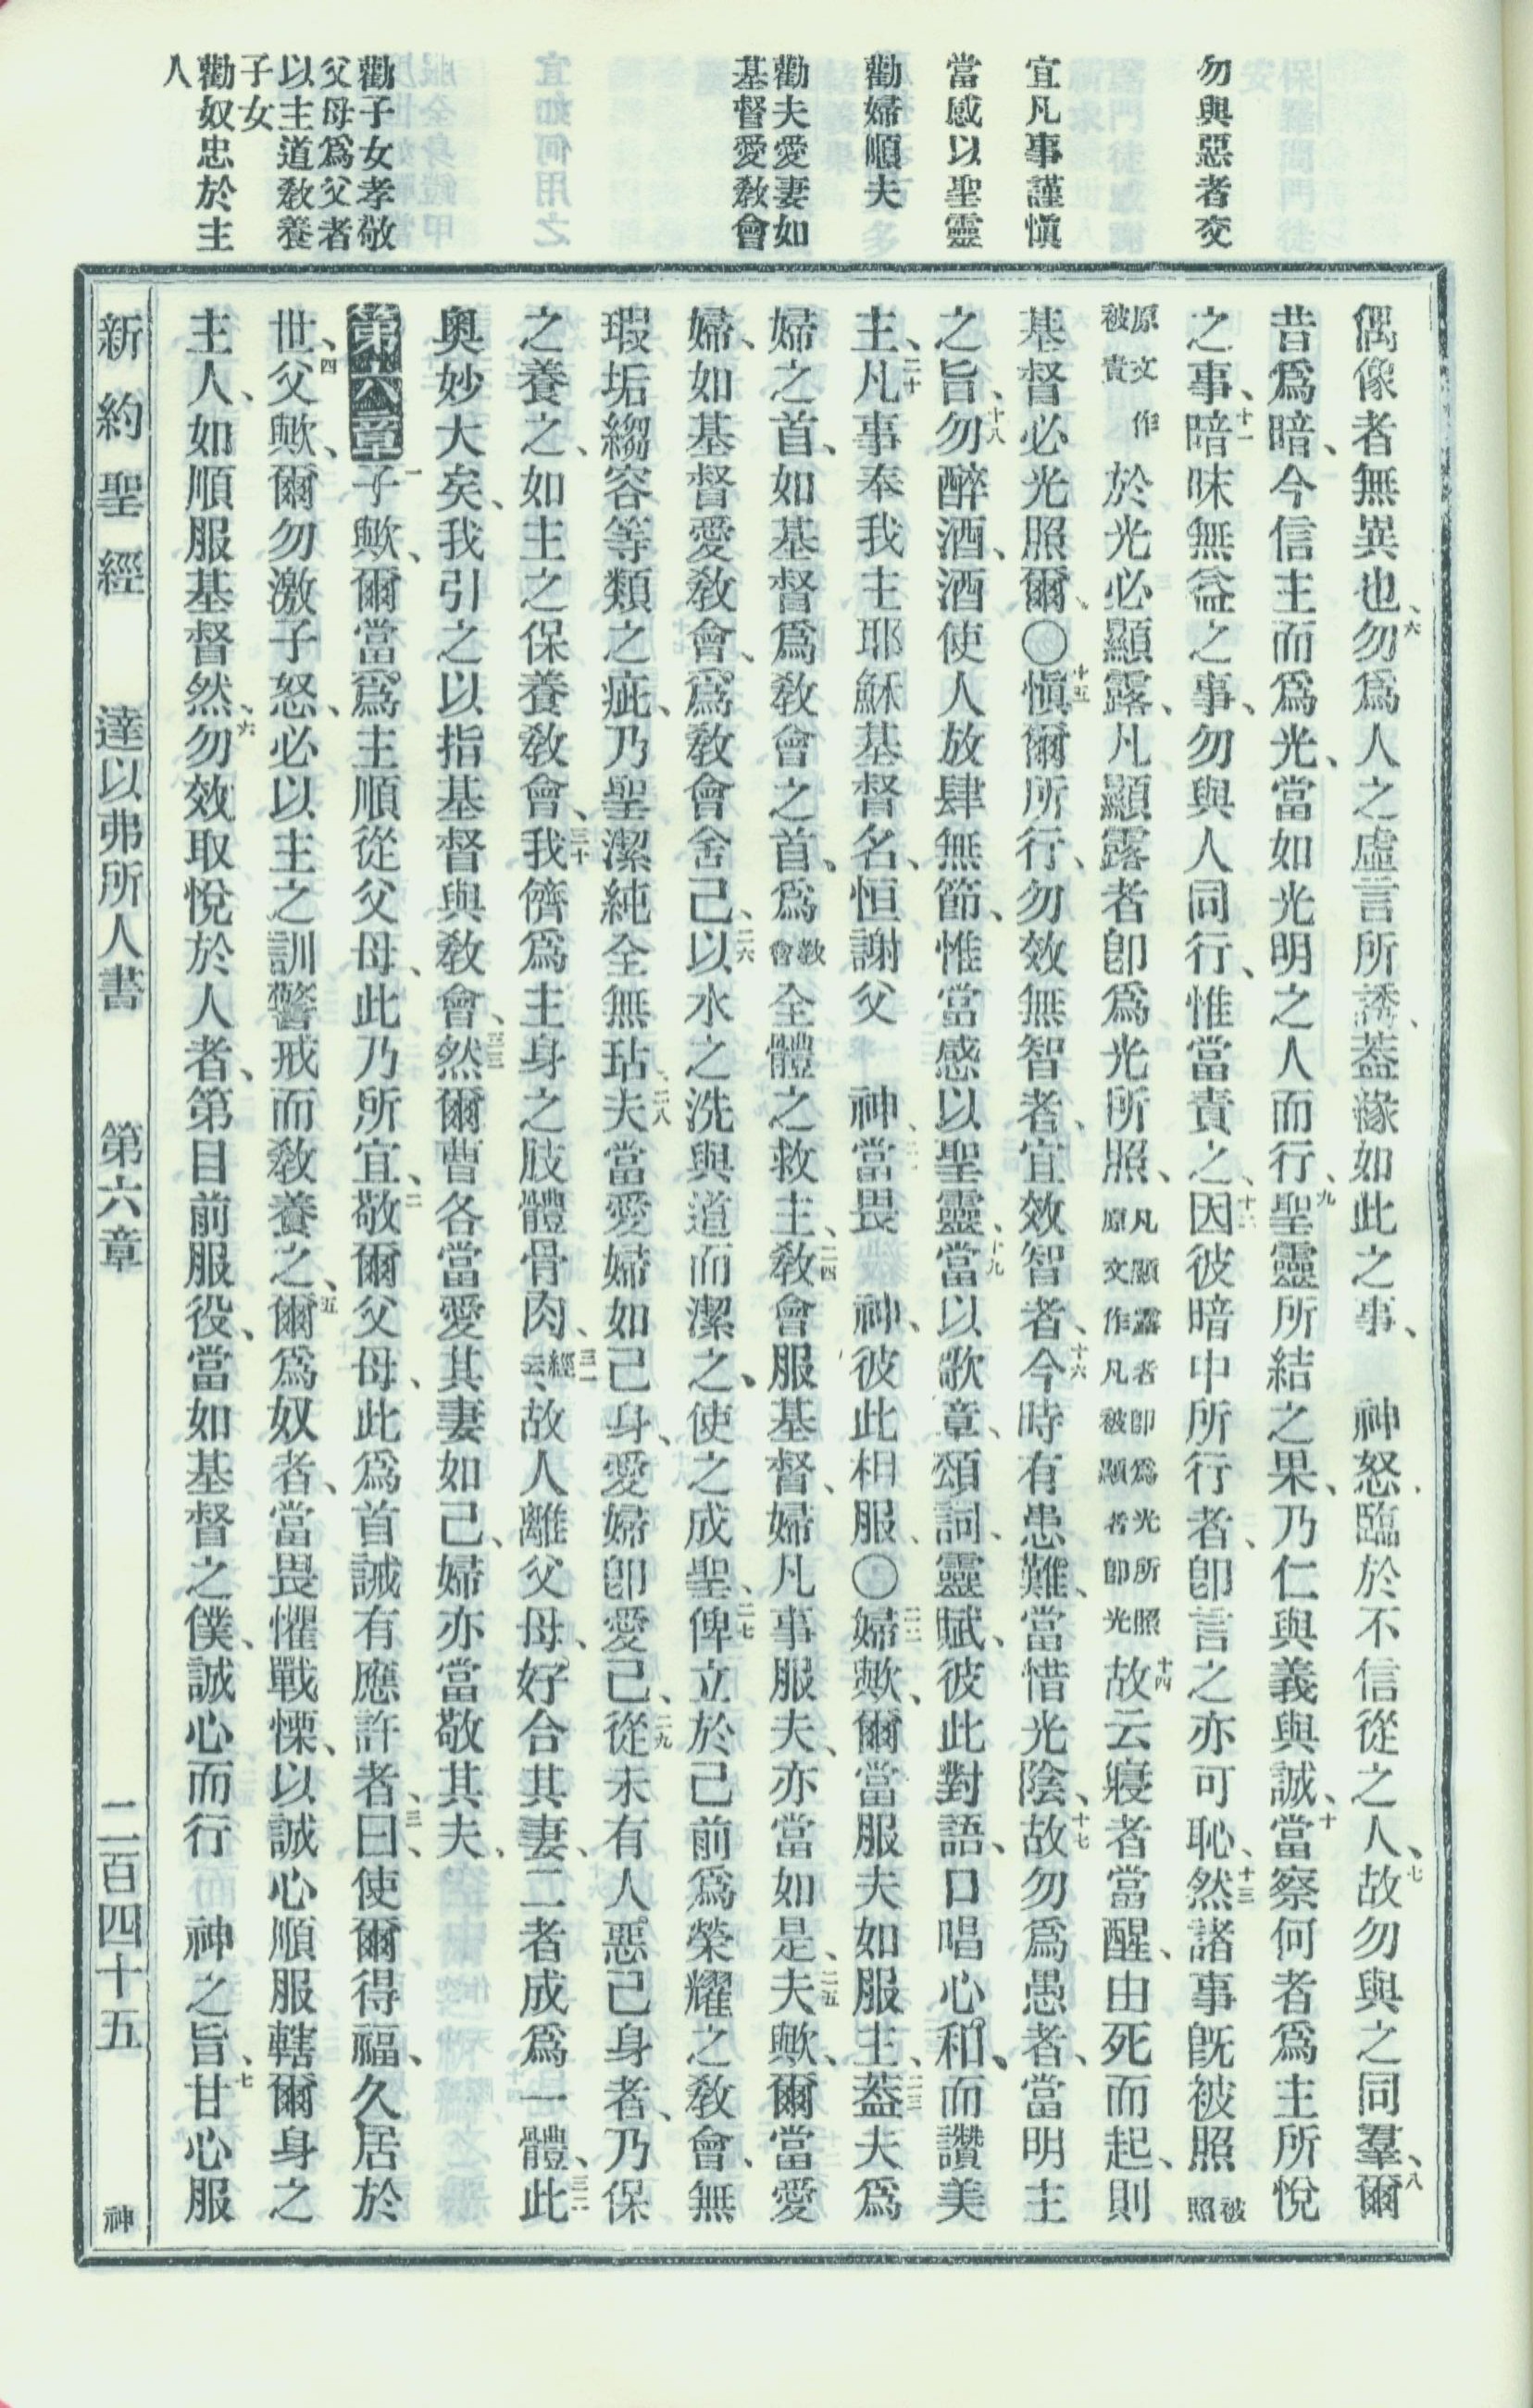 勿與惡者交
宜凡事謹愼
當感以聖靈
勸婦順夫
勸夫愛妻如
基督愛敎會
勸子女孝敬
父母爲父者
以主道敎養
子女
勸奴忠於主
人
偶像者無異也、六勿爲人之虛言所誘、葢緣如此之事、　神怒臨於不信從之人、七故勿與之同羣、八爾
昔爲暗、今信主而爲光、當如光明之人而行、九聖靈所結之果、乃仁與義與誠、十當察何者爲主所悅
之事、十一暗昧無益之事、勿與人同行、惟當責之、十二因彼暗中所行者、卽言之亦可恥、十三然諸事旣被照被照
原文作被責於光必顯露、凡顯露者卽爲光所照、凡顯露者卽爲光所照原文作凡被顯者卽光十四故云寢者當醒、由死而起、則
基督必光照爾、〇十五愼爾所行、勿效無智者、宜效智者、十六今時有患難、當惜光陰、十七故勿爲愚者、當明主
之旨、十八勿醉酒、酒使人放肆無節、惟當感以聖靈、十九當以歌章、頌詞、靈賦、彼此對語、口唱心和、而讚美
主、二十凡事奉我主耶穌基督名、恒謝父　神、二一當畏　神、彼此相服、〇二二婦歟、爾當服夫如服主、二三葢夫爲
婦之首、如基督爲敎會之首、爲敎會全體之救主、二四敎會服基督、婦凡事服夫、亦當如是、二五夫歟、爾當愛
婦、如基督愛敎會、爲敎會舍己、二六以水之洗與道而潔之、使之成聖、二七俾立於己前爲榮耀之敎會、無
瑕垢縐容等類之疵、乃聖潔純全無玷、二八夫當愛婦如己身、愛婦卽愛己、二九從未有人惡己身者、乃保
之養之、如主之保養敎會、三十我儕爲主身之肢體骨肉、三一經云、故人離父母、好合其妻、二者成爲一體、三二此
奧妙大矣、我引之以指基督與敎會、三三然爾曹各當愛其妻如己、婦亦當敬其夫、
第六章一子歟、爾當爲主順從父母、此乃所宜、二敬爾父母、此爲首誡有應許者、三曰、使爾得福、久居於
世、四父歟、爾勿激子怒、必以主之訓警戒而敎養之、五爾爲奴者、當畏懼戰慄、以誠心順服轄爾身之
主人、如順服基督然、六勿效取悅於人者、第目前服役、當如基督之僕、誠心而行　神之旨、七甘心服
新約聖經　達以弗所人書　第六章　二百四十五　神